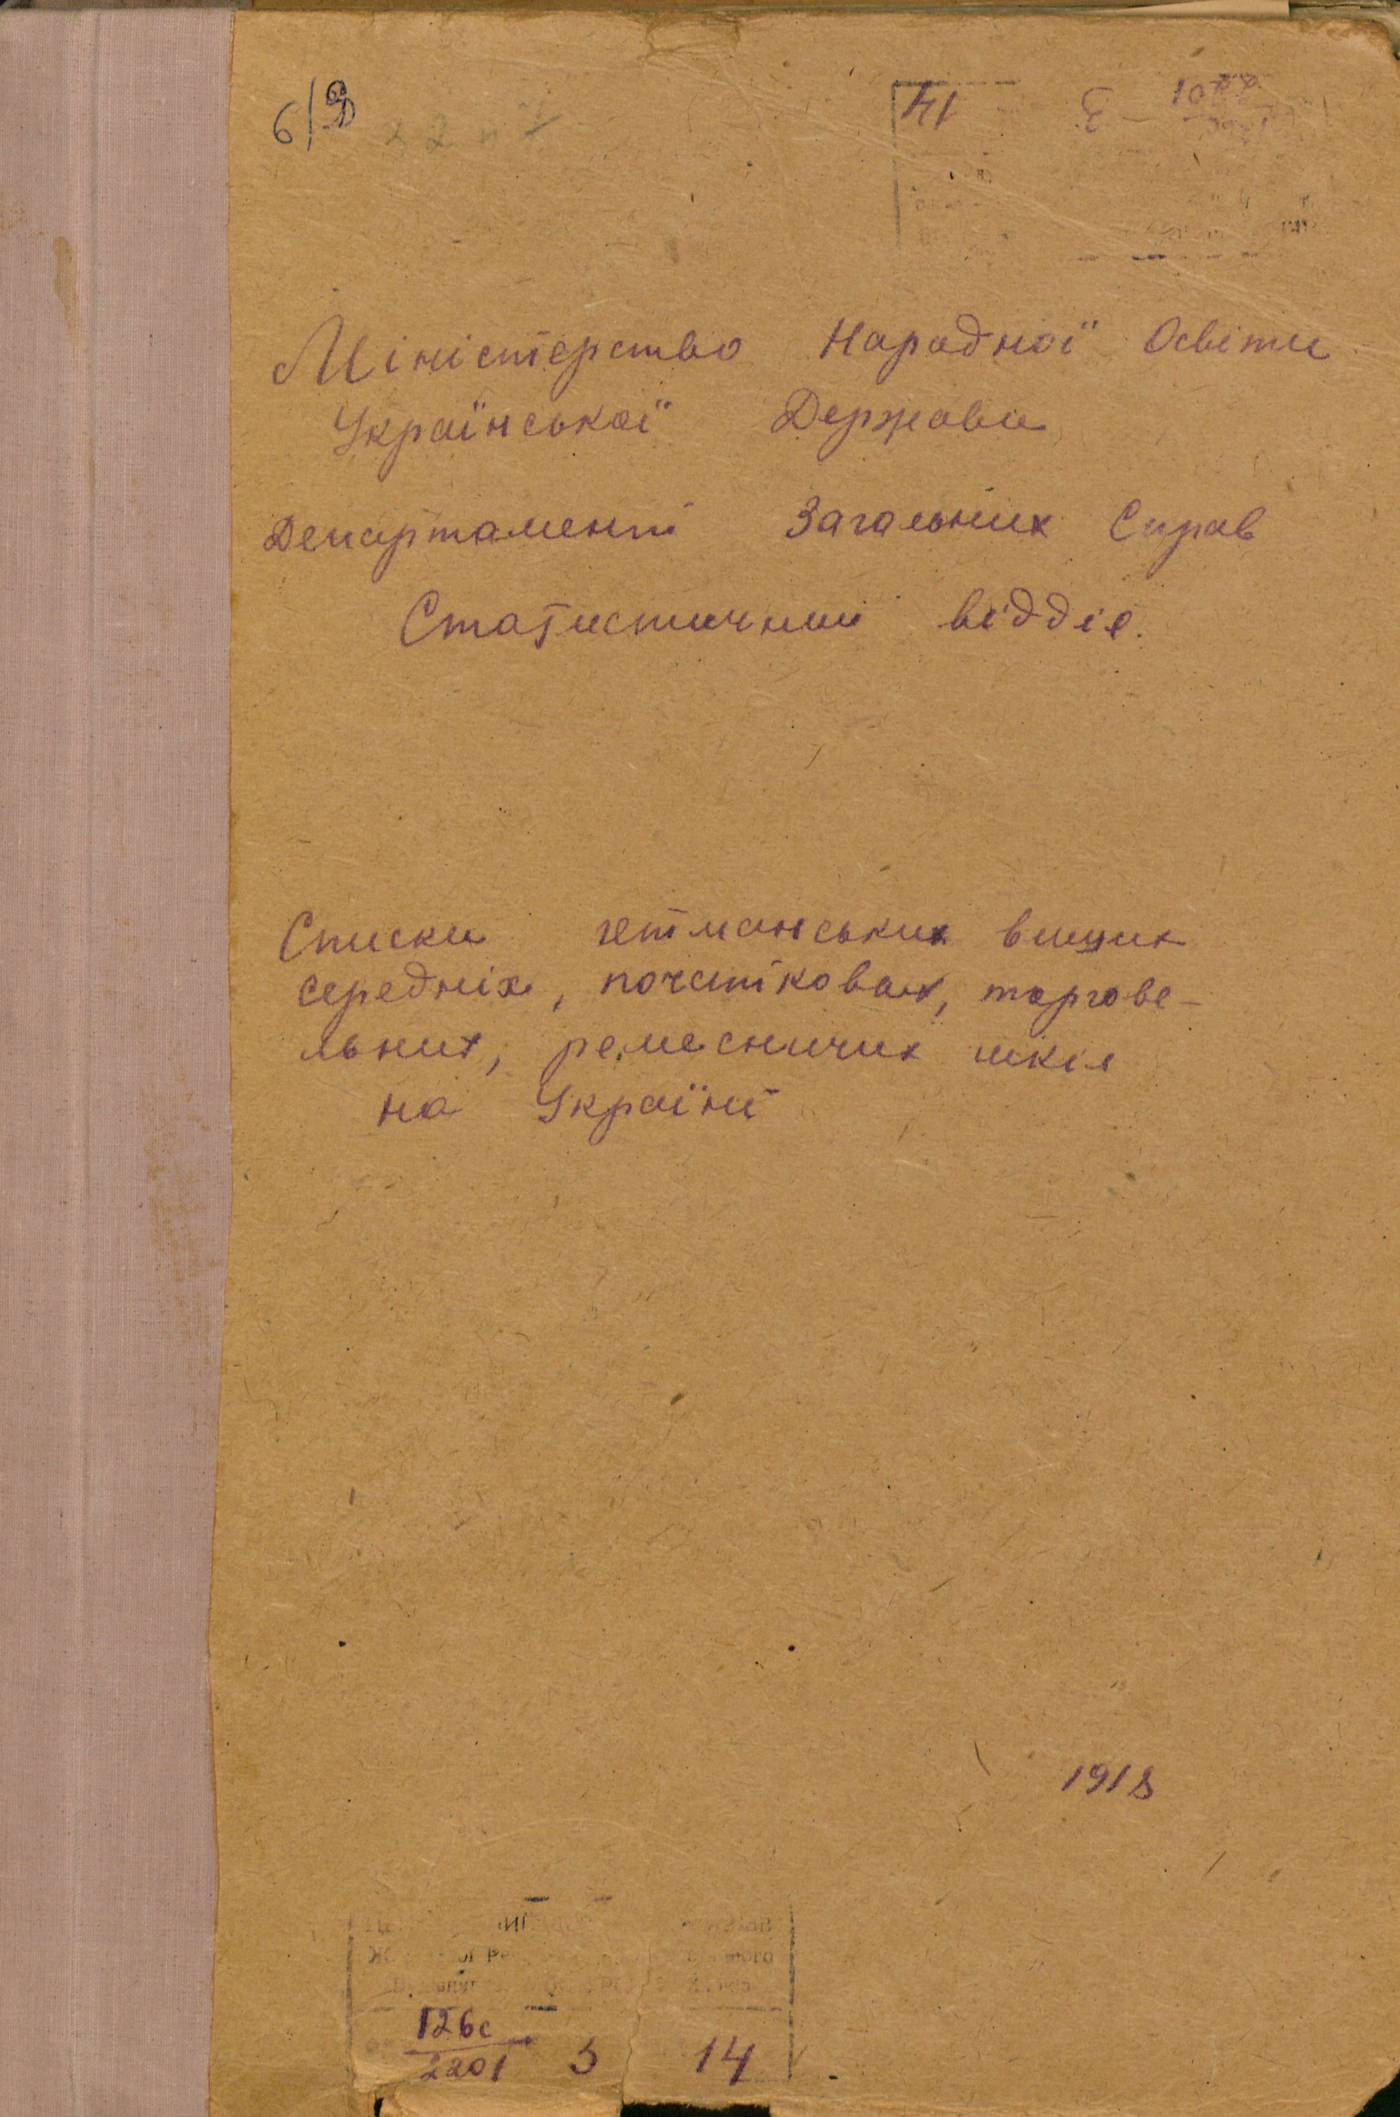 Міністерство Народної Освіти
Української Держави
Департамент Загальних Справ
Статистичний відділ.
Списки гетманських вищих
середніх, початкових, торгове-
льних, ремесничих шкіл
на Україні
1918
126с
2201 3 14